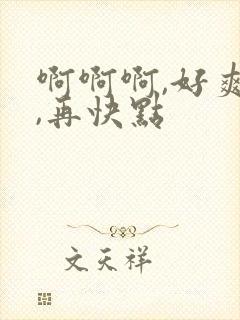 啊啊啊,好爽
,再快點
文天祥